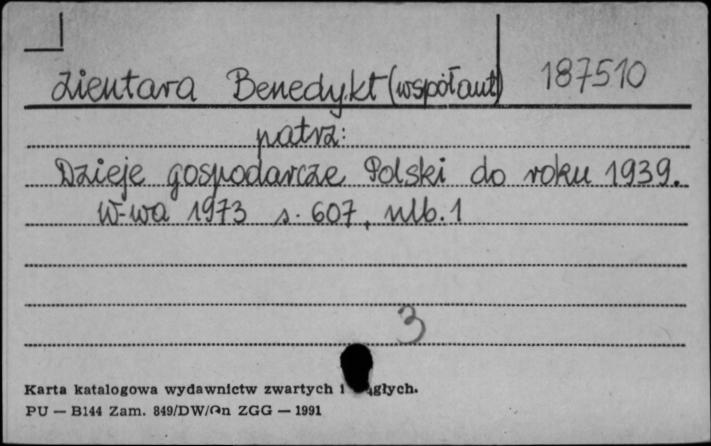 Zientara Benedykt (współaut) 187510
patrz:
Dzieje gospodarcze Polski do roku 1939.
W-wa 1973 s. 607, nlb. 1
3
Karta katalogowa wydawnictw zwartych i
PU — B144 Zam. 849/DW/On ZGG — 1991